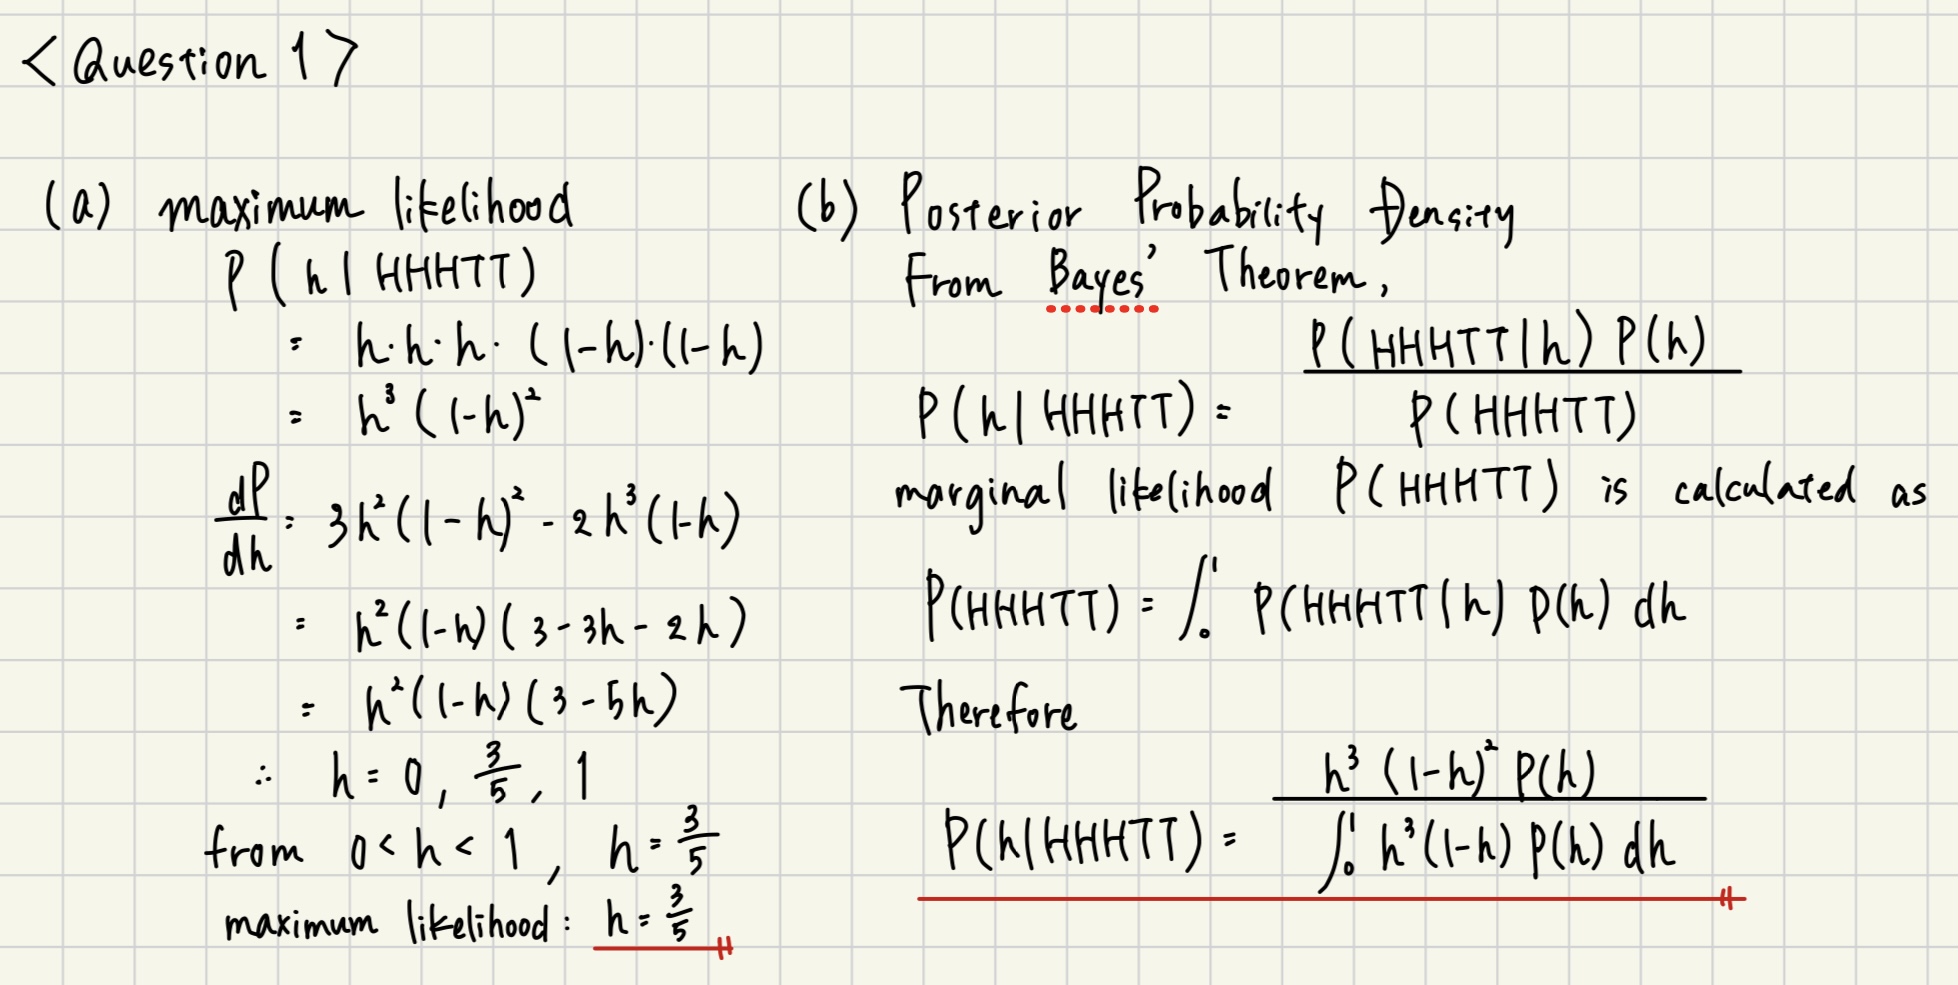 <Question 1>
(a) maximum likelihood
P(h|HHHTT)
= h·h·h·(1-h)·(1-h)
= h³(1-h)²
dP/dh = 3h²(1-h)² - 2h³(1-h)
= h²(1-h)(3-3h-2h)
= h²(1-h)(3-5h)
∴ h = 0, 3/5, 1
from 0<h<1, h = 3/5
maximum likelihood: h = 3/5
(b) Posterior Probability Density
From Bayes' Theorem,
P(h|HHHTT) = P(HHHTT|h) P(h) / P(HHHTT)
marginal likelihood P(HHHTT) is calculated as
P(HHHTT) = ∫₀¹ P(HHHTT|h) P(h) dh
Therefore
P(h|HHHTT) = h³(1-h)² P(h) / ∫₀¹ h³(1-h) P(h) dh